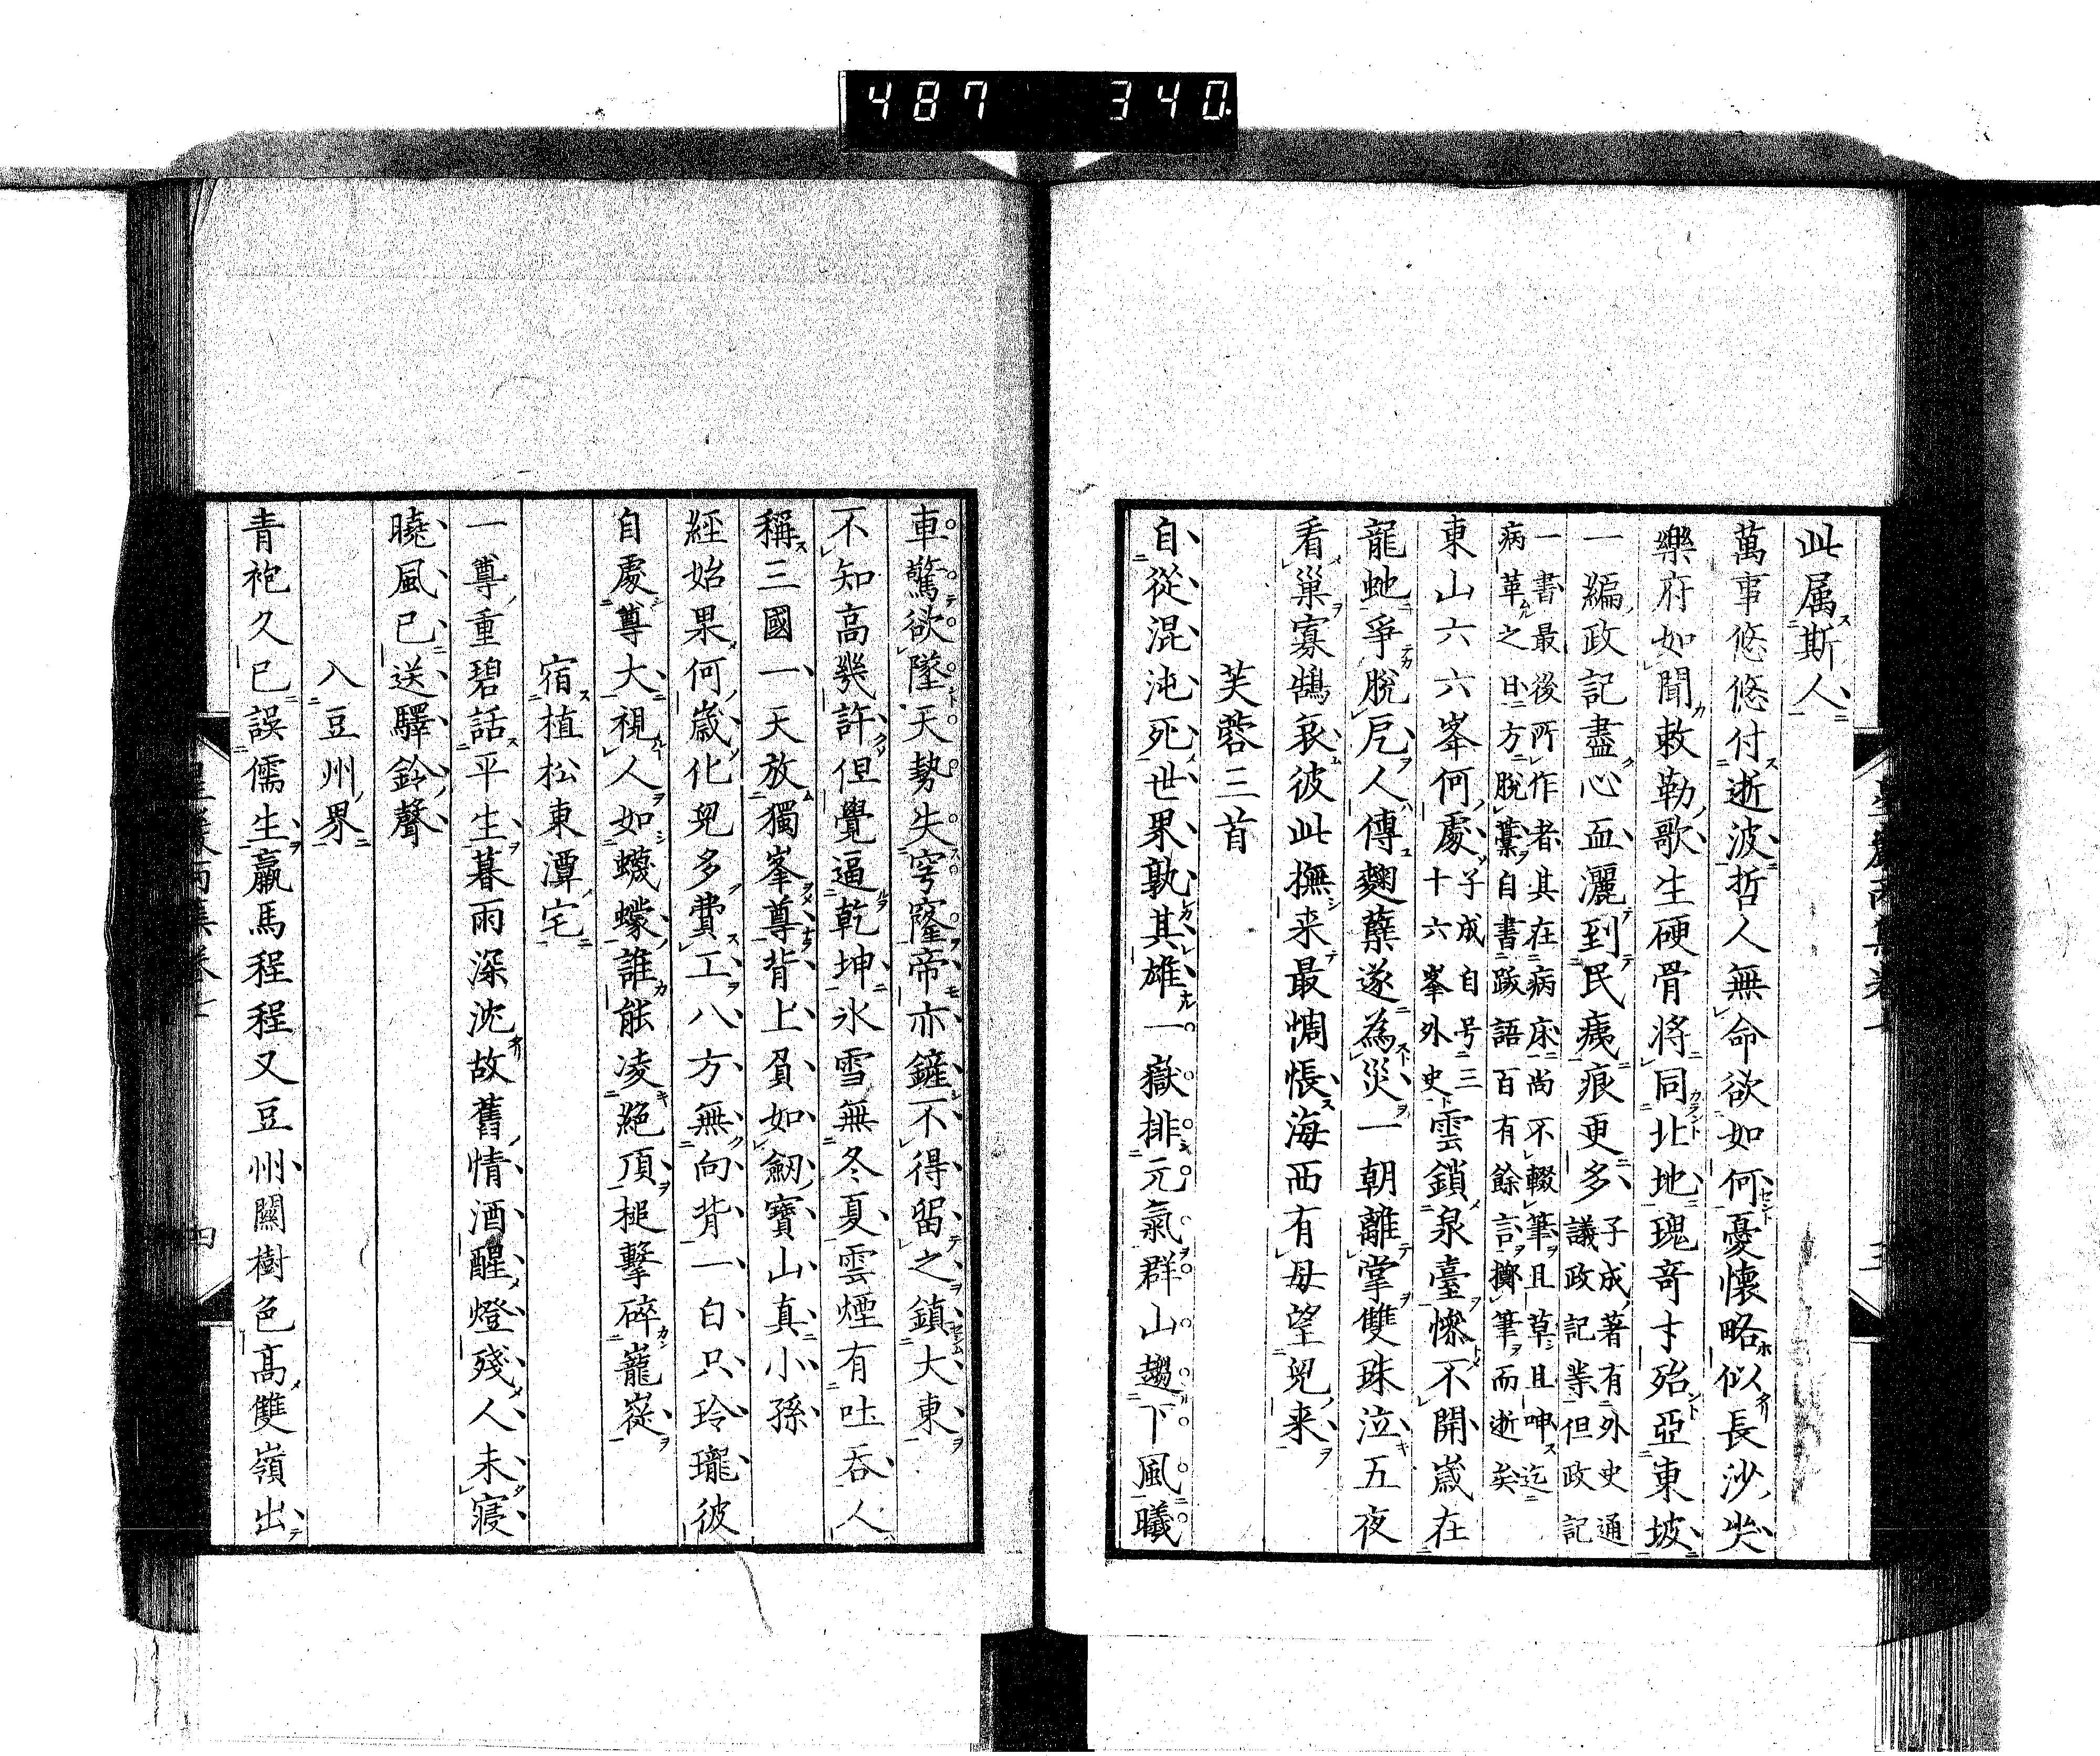 487 340
此属斯人
萬事悠悠付逝波哲人無命欲如何憂懷略似長沙哭
樂府如聞敕勒歌生硬骨將同北地瑰奇才殆亞東坡
一編政記盡心血灑到民痍痕更多子成著有外史通
議政記等但政記
一書最後所作者其在病床尚不輟筆且草且呻迄
病革之日方脫藁自書跋語百有餘言擲筆而逝矣
東山六六峯何處子成自号三
十六峯外史雲鎖泉臺慘不開歲在
龍虵爭脫厄人傳麹蘖遂為災一朝離掌雙珠泣五夜
看巢寡鵠哀彼此撫来最惆悵海西有母望兒来
芙蓉三首
自從混沌死世界孰其雄一嶽排元氣群山趨下風曦
車驚欲墜天勢失穹窿帝亦鏟不得留之鎮大東
不知高幾許但覺逼乾坤氷雪無冬夏雲煙有吐呑人
稱三國一天放獨峯尊背上負如劒寶山真小孫
經始果何歲化兒多費工八方無向背一白只玲瓏彼
自處尊大視人如蠛蠓誰能凌絕頂搥擊碎巃嵸
宿植松東潭宅
一尊重碧話平生暮雨深沈故舊情酒醒燈殘人未寢
曉風已送驛鈴聲
入豆州界
青袍久已誤儒生羸馬程程又豆州關樹色高雙嶺出
四